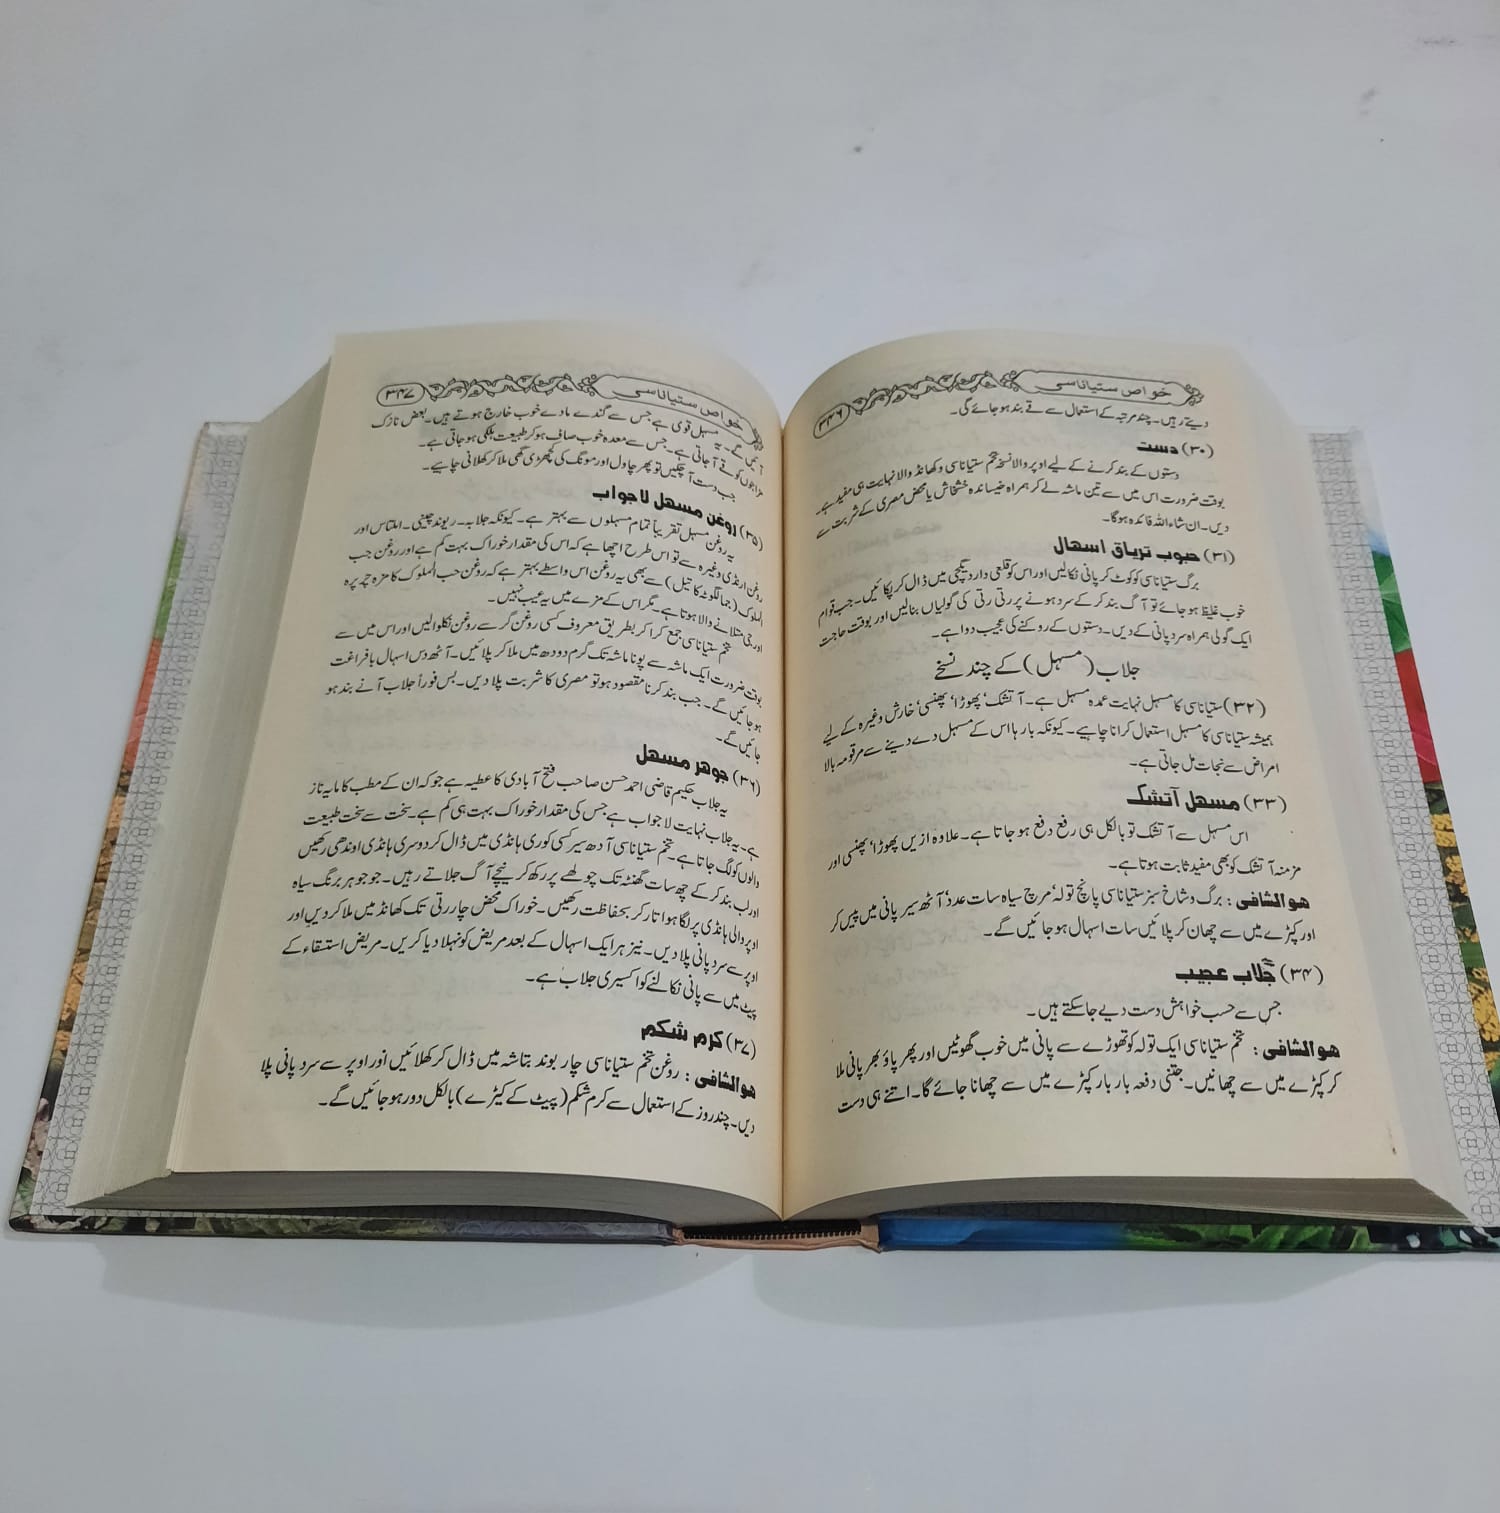 خواص ستیاناسی ۳۴۶
دیتے رہیں۔ چند مرتبہ کے استعمال سے قے بند ہو جائے گی۔
(۳۰) دست
دستوں کے بند کرنے کے لیے اوپر والا نسخہ تخم ستیاناسی و کھانڈ والا نہایت ہی مفید ہے۔
بوقت ضرورت اس میں سے تین ماشہ لے کر ہمراہ خیساندہ خشخاش یا محض مصری کے شربت سے
دیں۔ ان شاء اللہ فائدہ ہوگا۔
(۳۱) حبوب تریاق اسهال
برگ ستیاناسی کو کوٹ کر پانی نکالیں اور اس کو قلعی دار دیگچی میں ڈال کر پکائیں۔ جب قوام
خوب غلیظ ہو جائے تو آگ بند کر کے سرد ہونے پر رتی رتی کی گولیاں بنالیں اور بوقت حاجت
ایک گولی ہمراہ سرد پانی کے دیں۔ دستوں کے روکنے کی عجیب دوا ہے۔
جلاب (مسہل) کے چند نسخے
(۳۲) ستیاناسی کا مسہل نہایت عمدہ مسہل ہے۔ آتشک، پھوڑا، پھنسی، خارش وغیرہ کے لیے
ہمیشہ ستیاناسی کا مسہل استعمال کرانا چاہیے۔ کیونکہ بارہا اس کے مسہل دے دینے سے مرقومہ بالا
امراض سے نجات مل جاتی ہے۔
(۳۳) مسهل آتشک
اس مسہل سے آتشک تو بالکل ہی رفع دفع ہو جاتا ہے۔ علاوہ ازیں پھوڑا، پھنسی اور
مزمنہ آتشک کو بھی مفید ثابت ہوتا ہے۔
هو الشافی : برگ و شاخ سبز ستیاناسی پانچ تولہ، مرچ سیاہ سات عدد، آٹھ سیر پانی میں پیس کر
اور کپڑے میں سے چھان کر پلائیں سات اسہال ہو جائیں گے۔
(۳۴) جلاب عجیب
جس سے حسب خواہش دست دیے جاسکتے ہیں۔
هو الشافی : تخم ستیاناسی ایک تولہ کو تھوڑے سے پانی میں خوب گھوٹیں اور پھر پاؤ بھر پانی ملا
کر کپڑے میں سے چھانیں۔ جتنی دفعہ بار بار کپڑے میں سے چھانا جائے گا۔ اتنے ہی دست
خواص ستیاناسی ۳۴۷
آئیں گے۔ یہ مسہل قوی ہے جس سے گندے مادے خوب خارج ہوتے ہیں۔ بعض نازک
مزاجوں کو قے آ جاتی ہے۔ جس سے معدہ خوب صاف ہو کر طبیعت ہلکی ہو جاتی ہے۔
جب دست آ چکیں تو پھر چاول اور مونگ کی کھچڑی گھی ملا کر کھلانی چاہیے۔
(۳۵) روغن مسهل لاجواب
یہ روغن مسہل تقریباً تمام مسہلوں سے بہتر ہے۔ کیونکہ جلابہ۔ ریوند چینی۔ املتاس اور
روغن ارنڈی وغیرہ سے تو اس طرح اچھا ہے کہ اس کی مقدار خوراک بہت کم ہے اور روغن حب
الملوک (جمالگوٹہ کا تیل) سے بھی یہ روغن اس واسطے بہتر ہے کہ روغن حب الملوک کا مزہ چرپرہ
اور جی متلانے والا ہوتا ہے۔ مگر اس کے مزے میں یہ عیب نہیں۔
تخم ستیاناسی جمع کرا کر بطریق معروف کسی روغن گر سے روغن نکلوالیں اور اس میں سے
بوقت ضرورت ایک ماشہ سے پونا ماشہ تک گرم دودھ میں ملا کر پلائیں۔ آٹھ دس اسہال بافراغت
ہو جائیں گے۔ جب بند کرنا مقصود ہو تو مصری کا شربت پلا دیں۔ بس فوراً جلاب آنے بند ہو
جائیں گے۔
(۳۶) جوهر مسهل
یہ جلاب حکیم قاضی احمد حسن صاحب فتح آبادی کا عطیہ ہے جو کہ ان کے مطب کا مایہ ناز
ہے۔ یہ جلاب نہایت لاجواب ہے جس کی مقدار خوراک بہت ہی کم ہے۔ سخت سے سخت طبیعت
والوں کو لگ جاتا ہے۔ تخم ستیاناسی آدھ سیر کسی کوری ہانڈی میں ڈال کر دوسری ہانڈی اوندھی رکھیں
اور لب بند کر کے چھ سات گھنٹہ تک چولھے پر رکھ کر نیچے آگ جلاتے رہیں۔ جو جوہر برنگ سیاہ
اوپر والی ہانڈی پر لگا ہوا اتار کر بحفاظت رکھیں۔ خوراک محض چار رتی تک کھانڈ میں ملا کر دیں اور
اوپر سے سرد پانی پلا دیں۔ نیز ہر ایک اسہال کے بعد مریض کو نہلا دیا کریں۔ مریض استسقاء کے
پیٹ میں سے پانی نکالنے کو اکسیری جلاب ہے۔
(۳۷) کرم شکم
هو الشافی : روغن تخم ستیاناسی چار بوند بتاشہ میں ڈال کر کھلائیں اور اوپر سے سرد پانی پلا
دیں۔ چند روز کے استعمال سے کرم شکم (پیٹ کے کیڑے) بالکل دور ہو جائیں گے۔